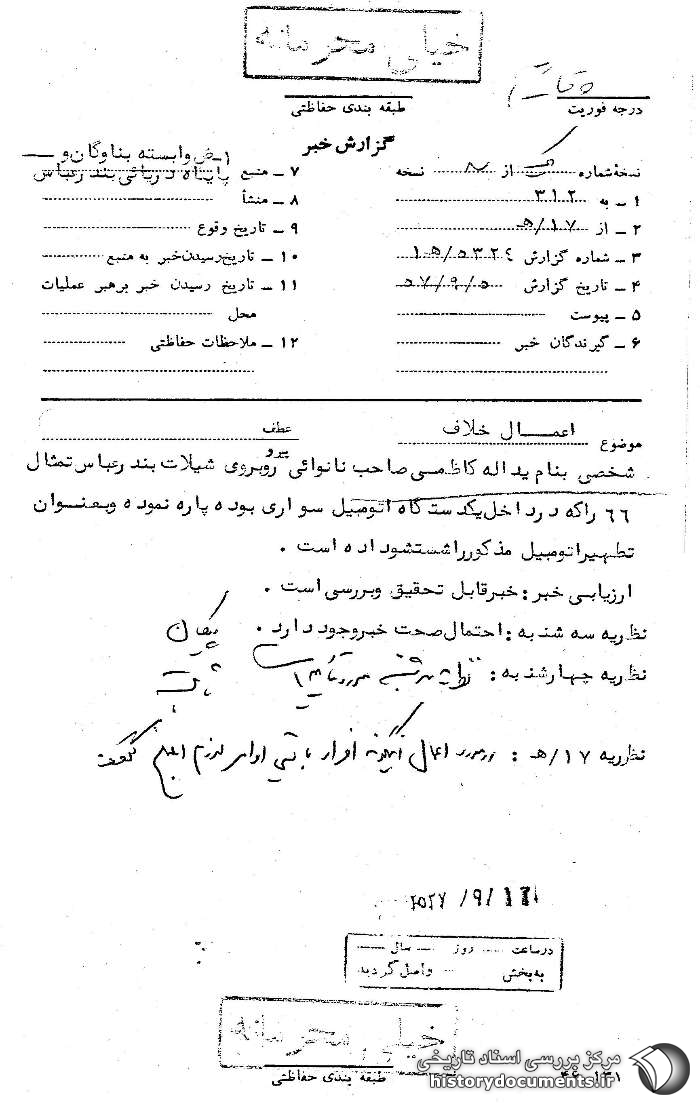 خیلی محرمانه
درجه فوریت
طبقه بندی حفاظتی
گزارش خبر
نسخهٔ شماره از نسخه
۱ – به ۳۱۲
۲ – از ۱۷/ه
۳ – شماره گزارش ۱۵/۵۳۲۴
۴ – تاریخ گزارش ۵۷/۹/۵
۵ – پیوست
۶ – گیرندگان خبر
۷ – منبع ۱-ض وابسته بناوگان و
پایگاه دریائی بندرعباس
۸ – منشأ
۹ – تاریخ وقوع
۱۰ – تاریخ رسیدن خبر به منبع
۱۱ – تاریخ رسیدن خبر برهبر عملیات
محل
۱۲ – ملاحظات حفاظتی
موضوع اعمال خلاف
عطف
پیرو
شخصی بنام یداله کاظمی صاحب نانوائی روبروی شیلات بندرعباس تمثال
۶۶ راکه درداخل یکدستگاه اتومبیل سواری بوده پاره نموده وبعنوان
تطهیراتومبیل مذکورراشستشوداده است .
ارزیابی خبر : خبرقابل تحقیق وبررسی است .
نظریه سه شنبه : احتمال صحت خبروجوددارد .
نظریه چهارشنبه :
نظریه ۱۷/ه : درمورد اعمال اینگونه افراد اوامر لازم ابلاغ
۲۵۳۷/۹/۱۲
درساعت روز سال
به بخش واصل گردید
خیلی محرمانه
طبقه بندی حفاظتی
مرکز بررسی اسناد تاریخی
historydocuments.ir